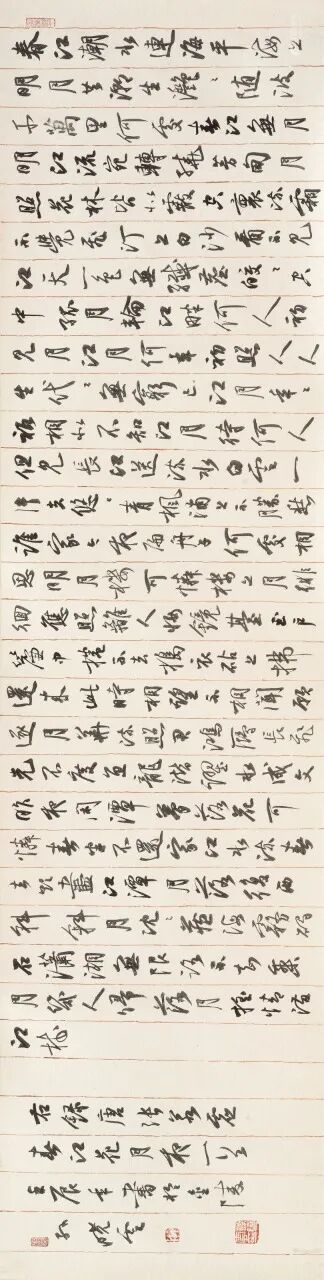 春江潮水連海平海上
明月共潮生灧〻随波
千萬里何處春江無月
明江流宛轉繞芳甸月
照花林皆似霰空裏流霜
不覺飛汀上白沙看不見
江天一色無纖塵皎〻空
中孤月輪江畔何人初
見月江月何年初照人人
生代〻無窮已江月年〻
祗相似不知江月待何人
但見長江送流水白雲一
片去悠〻青楓浦上不勝愁
誰家今夜扁舟子何處相
思明月樓可憐樓上月徘
徊應照離人妝鏡臺玉戶
簾中捲不去搗衣砧上拂
還來此時相望不相聞願
逐月華流照君鴻雁長飛
光不度魚龍潛躍水成文
昨夜閑潭夢落花可
憐春半不還家江水流春
去欲盡江潭月落復西
斜斜月沉〻藏海霧碣
石瀟湘無限路不知乘
月幾人歸落月搖情滿
江樹
右録唐張若虛
春江花月夜一首
壬辰年書於金陵
孫曉雲